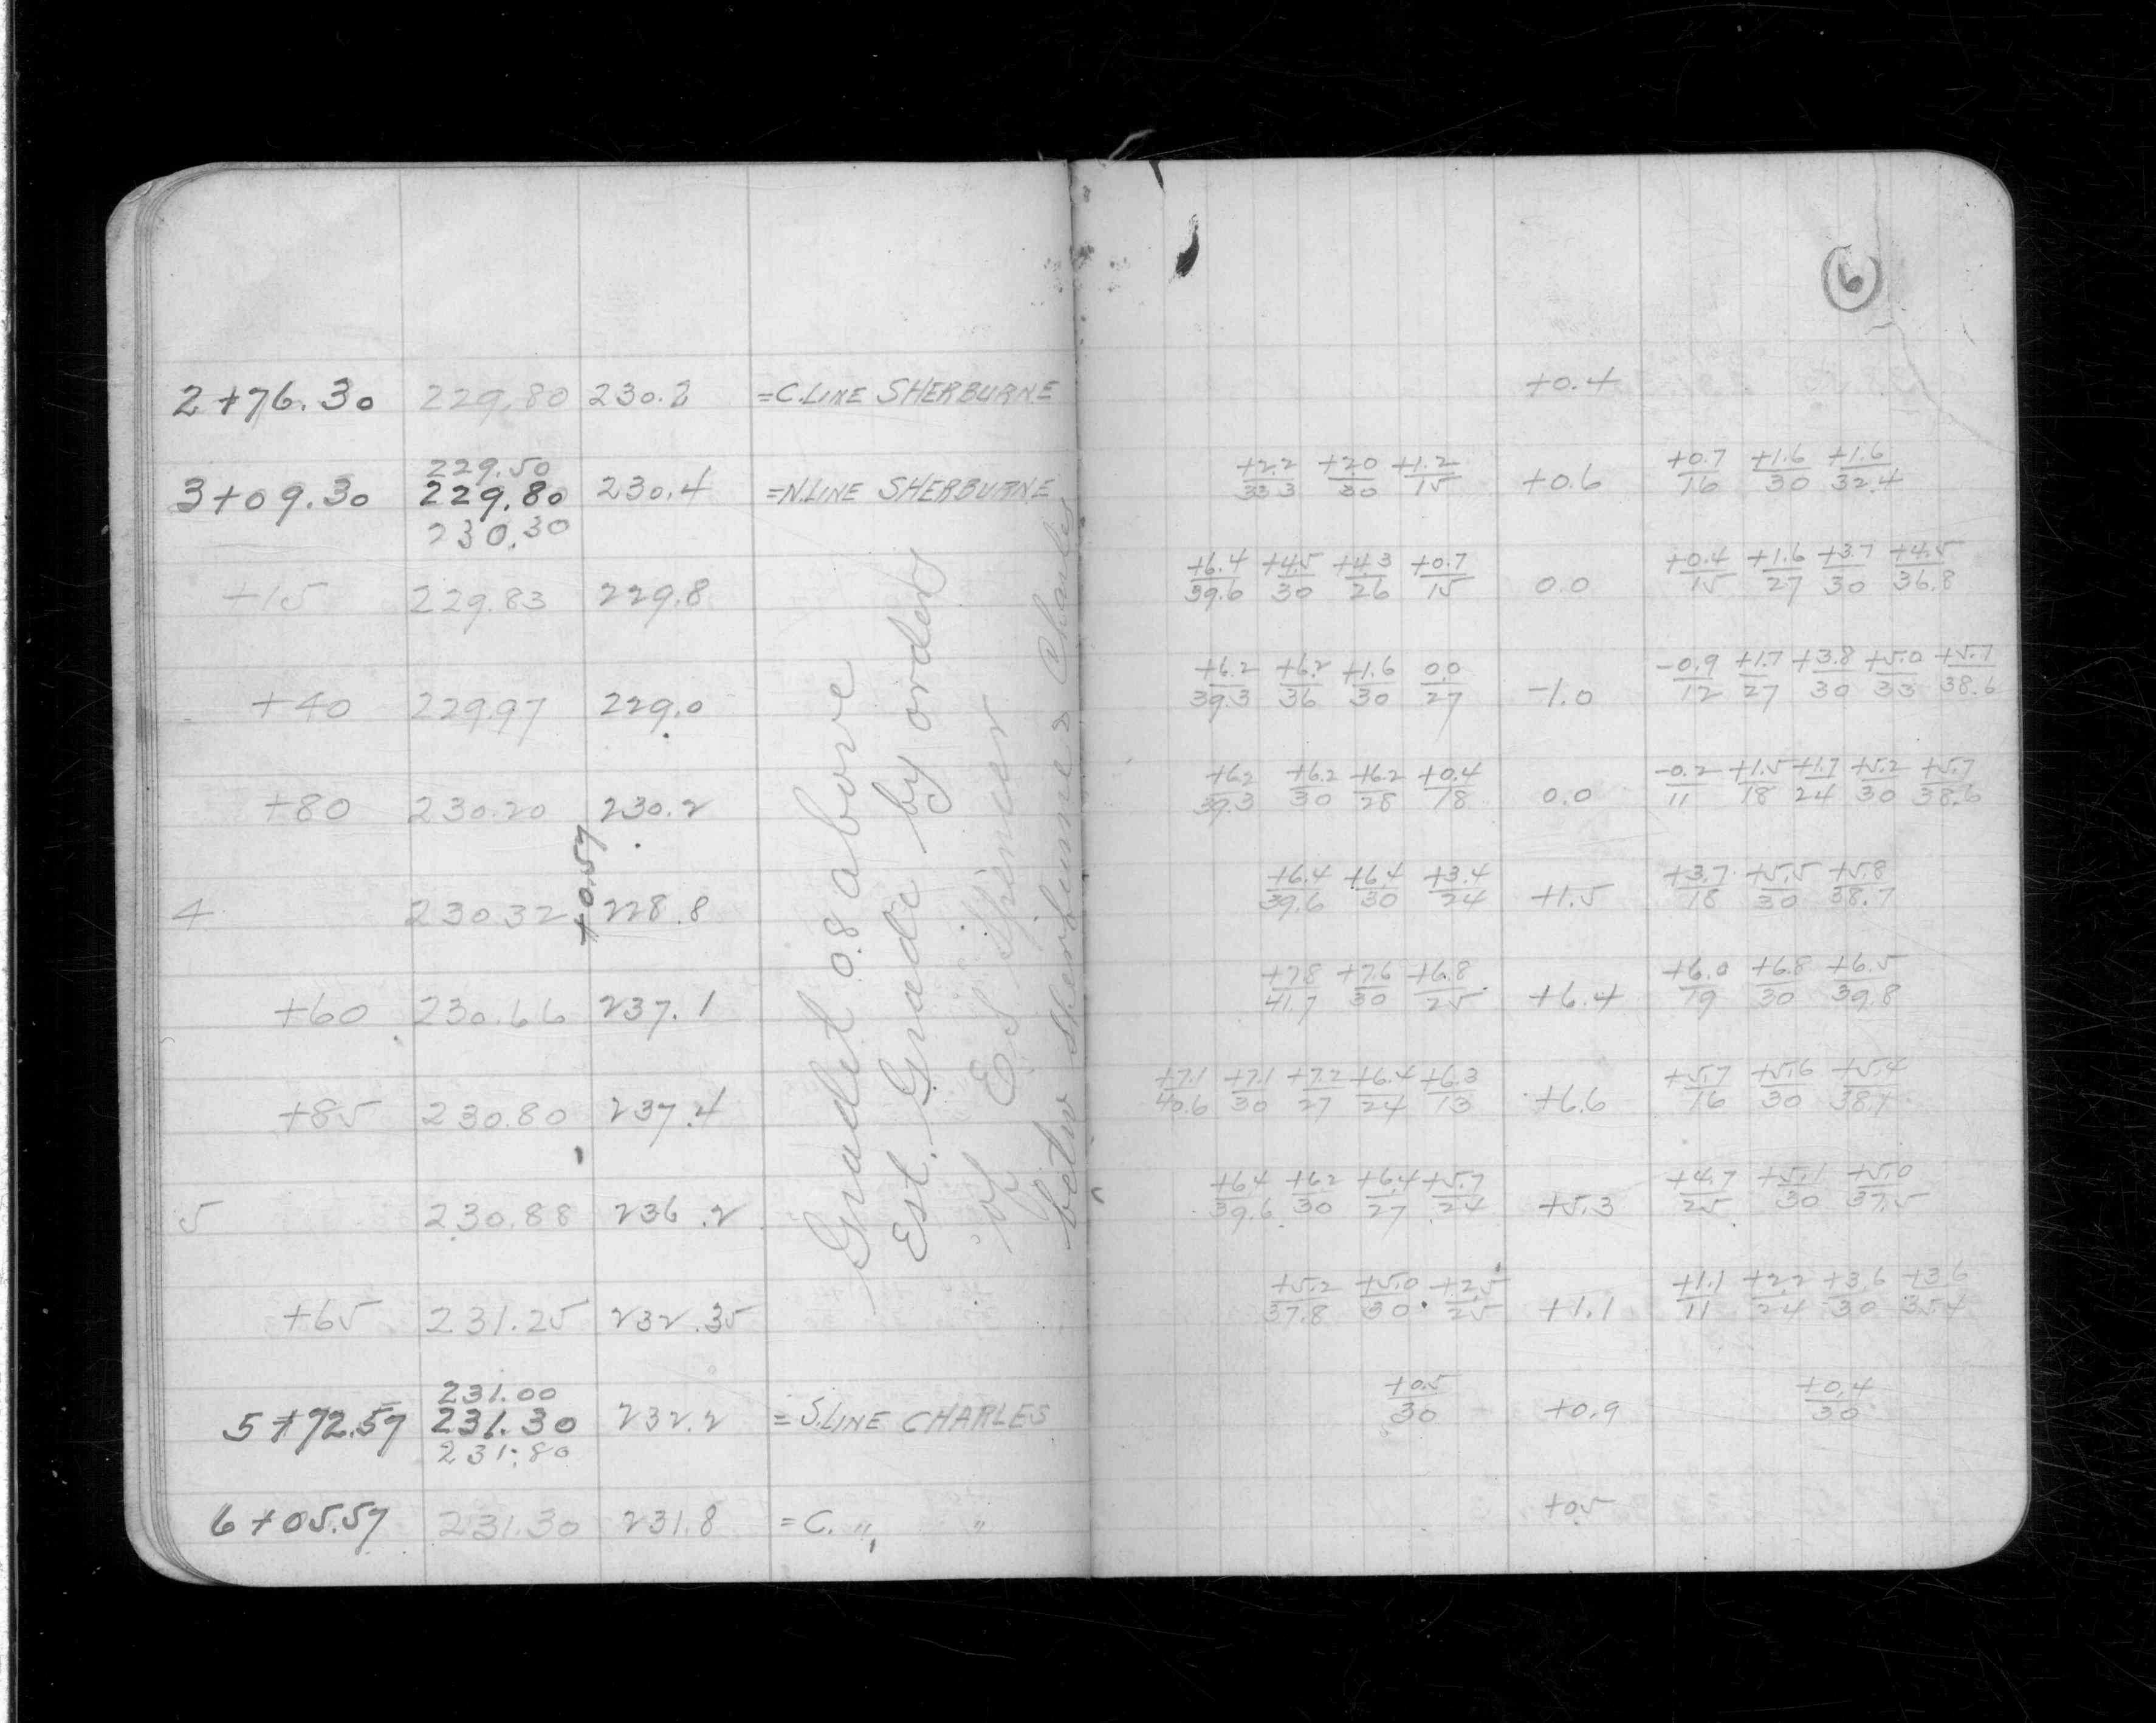 6
2+76.30 229.80 230.2 =C.LINE SHERBURNE +0.4
229.50
3+09.30 229.80 230.4 =N.LINE SHERBURNE +2.2/33.3 +2.0/30 +1.2/15 +0.6 +0.7/16 +1.6/30 +1.6/32.4
230.30
+15 229.83 229.8 +6.4/39.6 +4.5/30 +4.3/26 +0.7/15 0.0 +0.4/15 +1.6/27 +3.7/30 +4.5/36.8
+40 229.97 229.0 +6.2/39.3 +6.2/36 +1.6/30 0.0/27 -1.0 -0.9/12 +1.7/27 +3.8/30 +5.0/33 +5.7/38.6
+80 230.20 230.2 +6.2/39.3 +6.2/30 +6.2/28 +0.4/18 0.0 -0.2/11 +1.5/18 +1.7/24 +5.2/30 +5.7/38.6
+0.57
4 230.32 228.8 +6.4/39.6 +6.4/30 +3.4/24 +1.5 +3.7/18 +5.5/30 +5.8/38.7
+60 230.66 237.1 +7.8/41.7 +7.6/30 +6.8/25 +6.4 +6.0/19 +6.8/30 +6.5/39.8
+85 230.80 237.4 +7.1/40.6 +7.1/30 +7.2/27 +6.4/24 +6.3/13 +6.6 +5.7/16 +5.6/30 +5.4/38.1
5 230.88 236.2 +6.4/39.6 +6.2/30 +6.4/27 +5.7/24 +5.3 +4.7/25 +5.1/30 +5.0/37.5
+65 231.25 232.35 +5.2/37.8 +5.0/30 +2.5/25 +1.1 +1.1/11 +2.2/24 +3.6/30 +3.6/35.4
231.00
5+72.57 231.30 232.2 =S.LINE CHARLES +0.5/30 +0.9 +0.4/30
231.80
6+05.57 231.30 231.8 =C. " " +0.5
Graded 0.8 above
Est. Grade by orders
of Ed Spencer
betw Sherburne & Charles